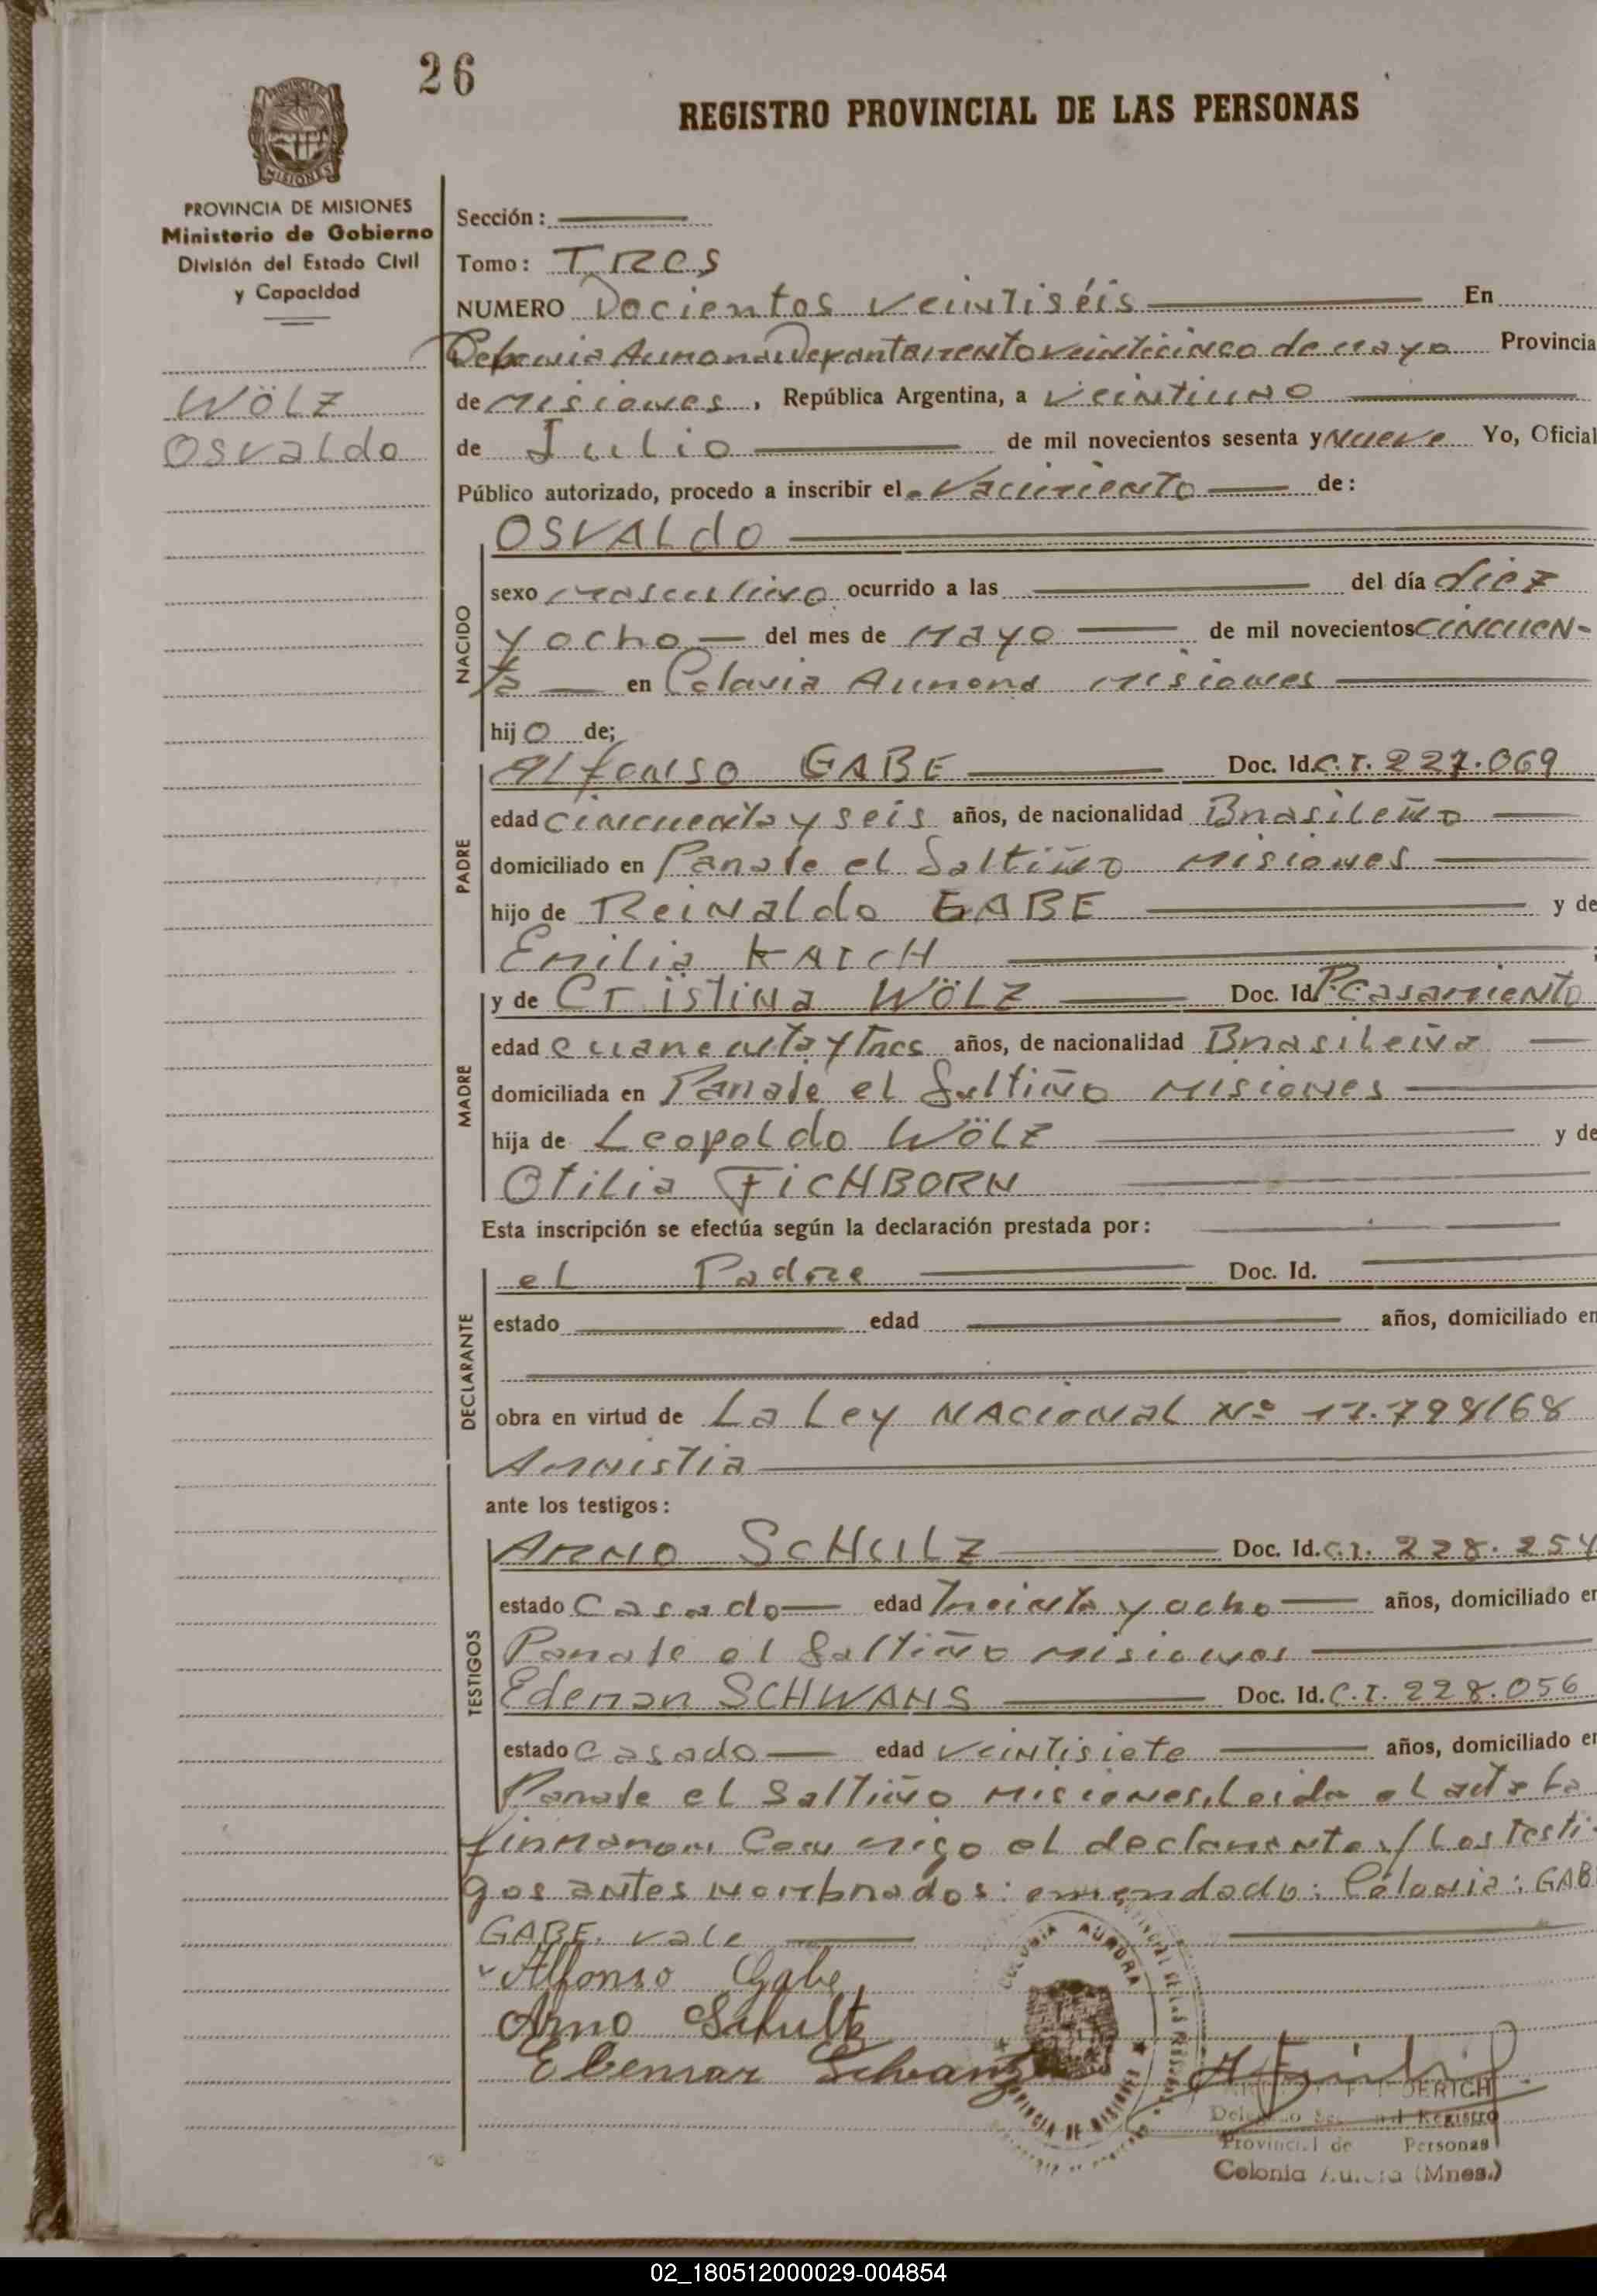 26
REGISTRO PROVINCIAL DE LAS PERSONAS
MISIONES
PROVINCIA DE MISIONES
Ministerio de Gobierno
División del Estado Civil
y Capacidad
WÖLZ
Osvaldo
Sección:
Tomo: Tres
NUMERO Docientos veintiséis En
Colonia Aurora Departamento veinticinco de mayo Provincia
de Misiones, República Argentina, a veintiuno
de Julio de mil novecientos sesenta y nueve Yo, Oficial
Público autorizado, procedo a inscribir el Nacimiento de:
NACIDO
OSVALdO
sexo masculino ocurrido a las del día diez
y ocho del mes de Mayo de mil novecientos CINCUEN-
ta en Colonia Aurora Misiones
hijo de;
PADRE
Alfonso GABE Doc. Id. C.I. 227.069
edad cincuenta y seis años, de nacionalidad Brasileño
domiciliado en Paraje el Saltiño Misiones
hijo de Reinaldo GABE y de
Emilia KAICH
MADRE
y de Cristina WÖLZ Doc. Id. P. Casamiento
edad cuarenta y tres años, de nacionalidad Brasileña
domiciliada en Paraje el Saltiño Misiones
hija de Leopoldo WÖLZ y de
Otilia FICHBORN
Esta inscripción se efectúa según la declaración prestada por:
DECLARANTE
el Padre Doc. Id.
estado edad años, domiciliado en
obra en virtud de La Ley NACional Nº 17.798/68
Amnistia
ante los testigos:
TESTIGOS
Arno SCHULZ Doc. Id. C.I. 228.254
estado Casado edad Treinta y ocho años, domiciliado en
Paraje el Saltiño Misiones
Edemar SCHWANS Doc. Id. C.I. 228.056
estado Casado edad veintisiete años, domiciliado en
Paraje el Saltiño Misiones, Leida el acta la
firmaron Conmigo el declarante y Los testi-
gos antes nombrados: emendado: Colonia: GAB
GABE. vale
Alfonso Gabe
Arno Schultz
Edemar Schwanz
COLONIA AURORA
PROVINCIA DE MISIONES
Registro
Provincial de Personas
Colonia Aurora (Mnes.)
02_180512000029-004854